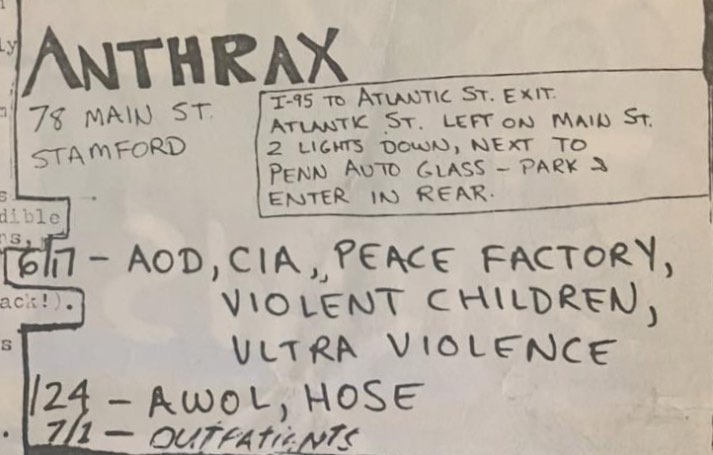 ly
ANTHRAX
78 MAIN ST.
STAMFORD
I-95 TO ATLANTIC ST. EXIT.
ATLANTIC ST. LEFT ON MAIN ST.
2 LIGHTS DOWN, NEXT TO
PENN AUTO GLASS – PARK &
ENTER IN REAR.
s
dible
ns,
6/17 – AOD, CIA, PEACE FACTORY,
ack!).
VIOLENT CHILDREN,
s
ULTRA VIOLENCE
/24 – AWOL, HOSE
7/1 – OUTPATIENTS